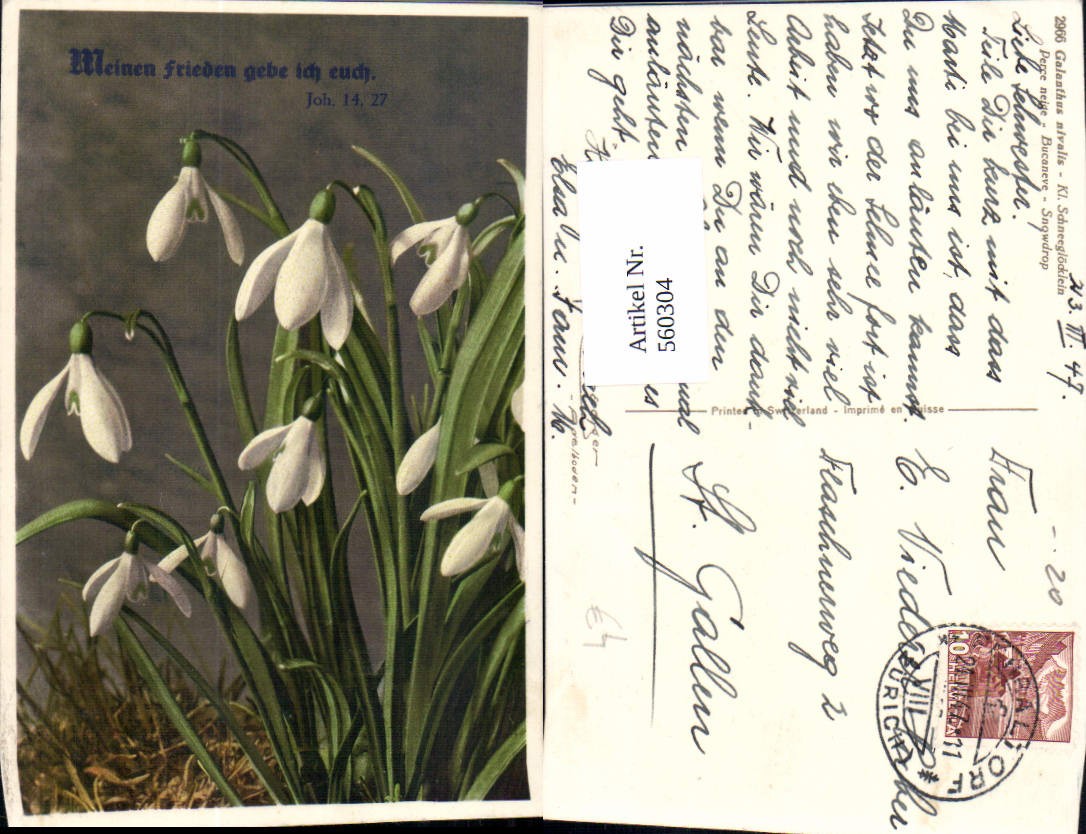 Meinen Frieden gebe ich euch.
Joh. 14, 27
2966 Galanthus nivalis - Kl. Schneeglöcklein
Perce neige - Bucaneve - Snowdrop
23. III. 47.
Liebe Schwester.
Teile Dir kurz mit dass
Marti bei uns ist, dass
Du uns anläuten kannst.
Jetzt wo der Schnee fort ist
haben wir eben sehr viel
Arbeit und noch nicht viel
Leute. Wir wären Dir dank
bar wenn Du an den
nächsten
anläuten es
Dir geht.
Artikel Nr.
560304
Printed in Switzerland - Imprimé en Suisse
-.20
Frau
E.
Flaschnerweg 2
St. Gallen
10
HELVETIA
ZÜRICH
DORF
XII
11
€4